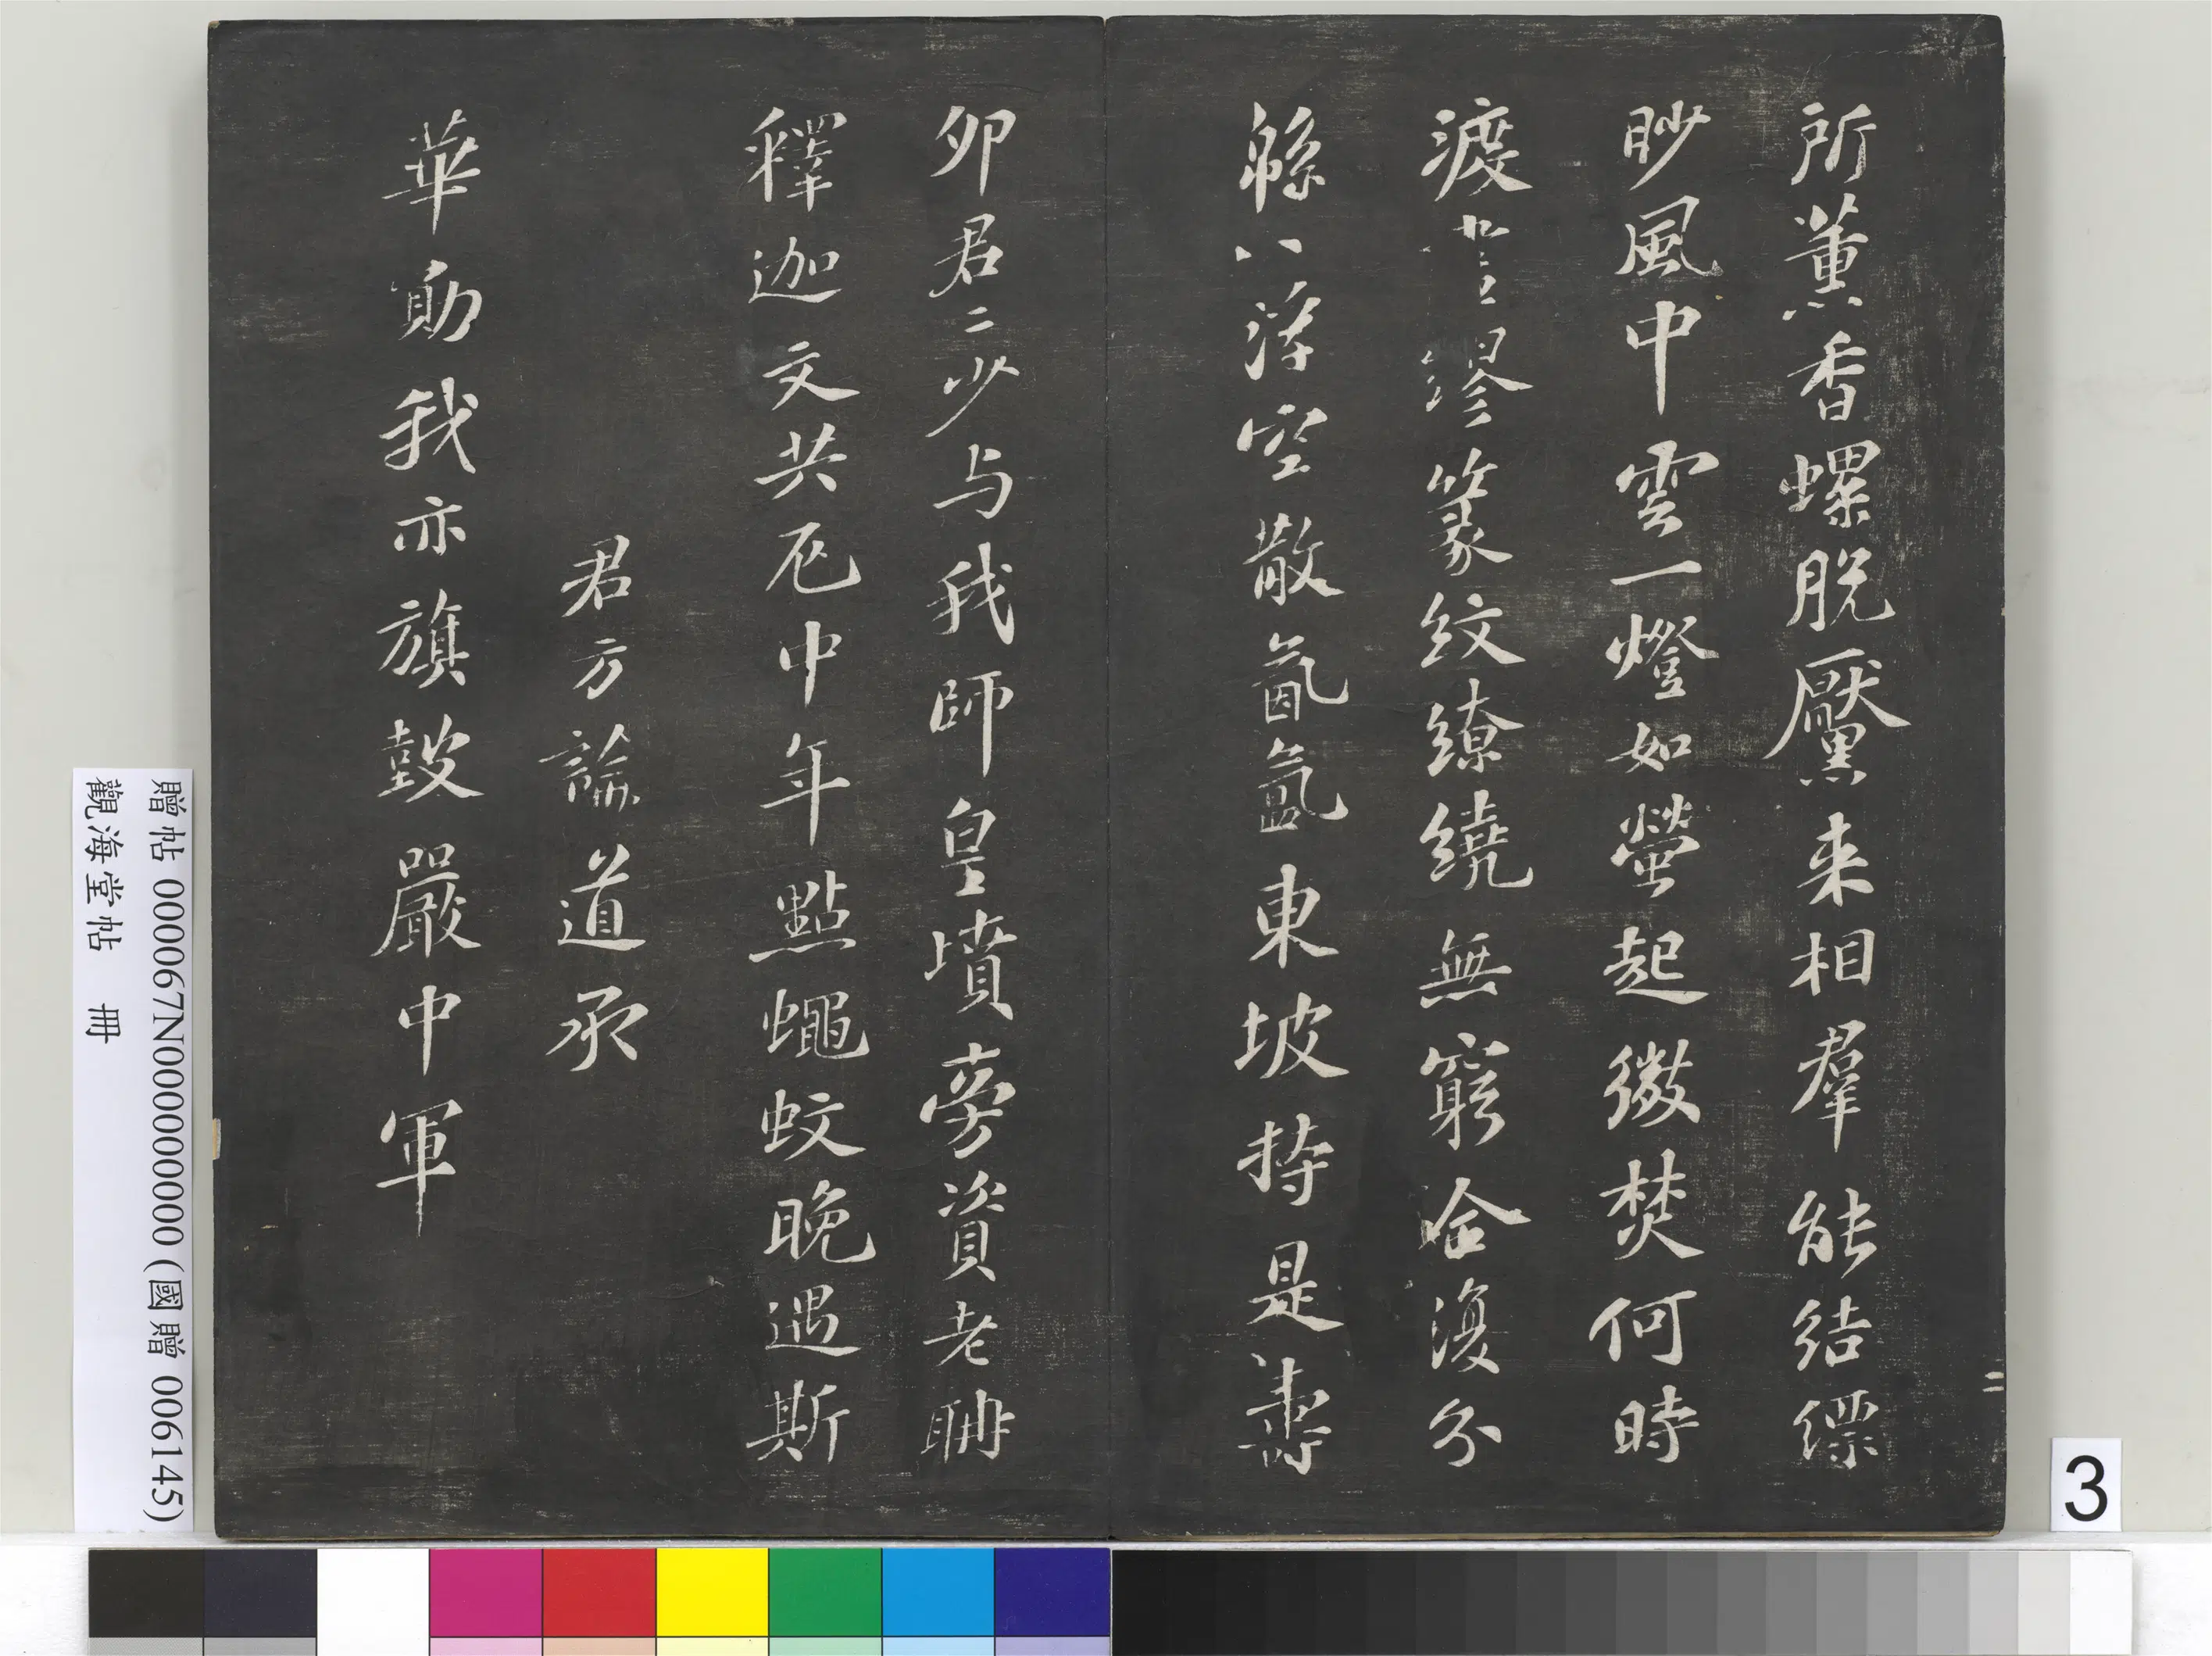 所薰香螺脫黶来相羣能結縹
眇風中雲一燈如螢起微焚何時
渡盡繆篆紋繚繞無窮合復分
緜〻浮空散氤氳東坡持是壽
卯君〻少与我師皇墳旁資老聃
釋迦文共厄中年點蠅蚊晚遇斯
君方論道承
華勛我亦旗鼓嚴中軍
二
3
贈帖 000067N000000000 (國贈 006145)
觀海堂帖 冊